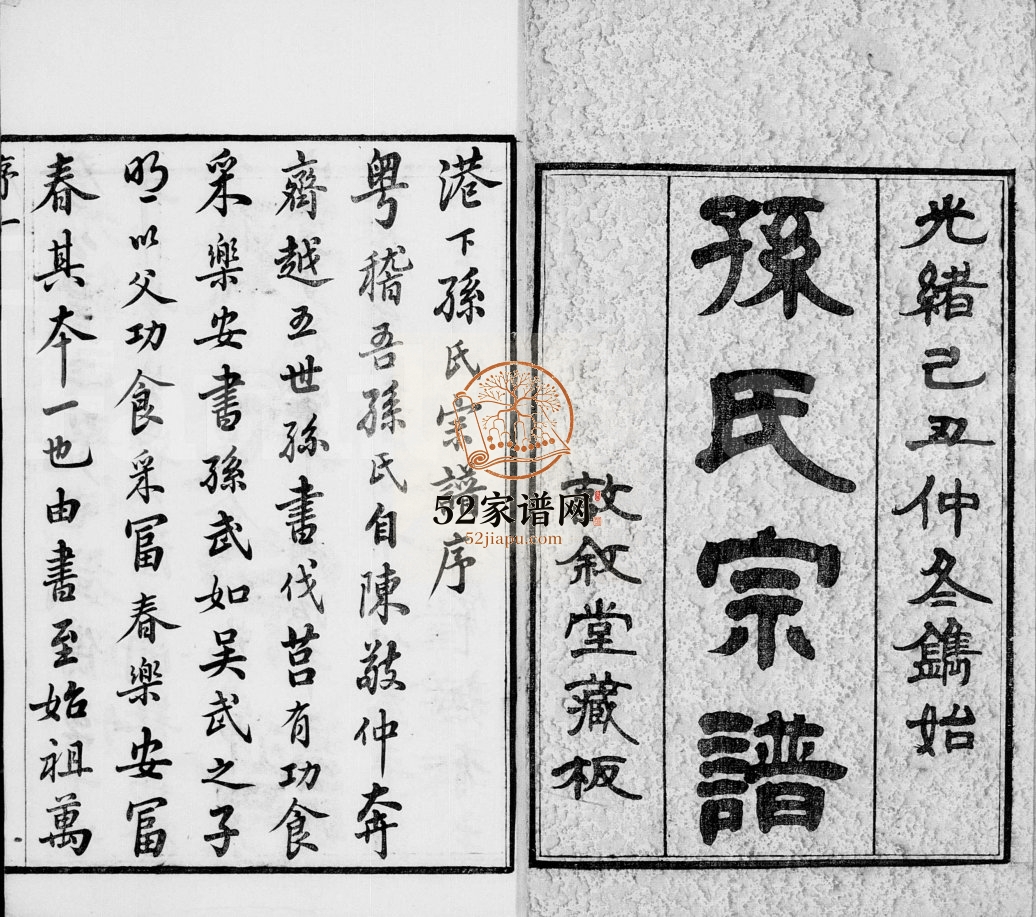 光緒己丑仲冬鐫始
孫氏宗譜
敦敘堂藏板
港下孫氏宗譜序
粵稽吾孫氏自陳敬仲奔
齊越五世孫書伐莒有功食
采樂安書孫武如吳武之子
明以父功食采冨春樂安冨
春其本一也由書至始祖萬
序一
52家谱网
52jiapu.com